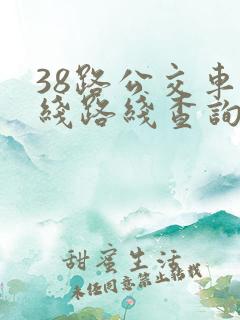 38路公交車
綫路綫查詢
甜蜜生活
未經同意禁止轉載